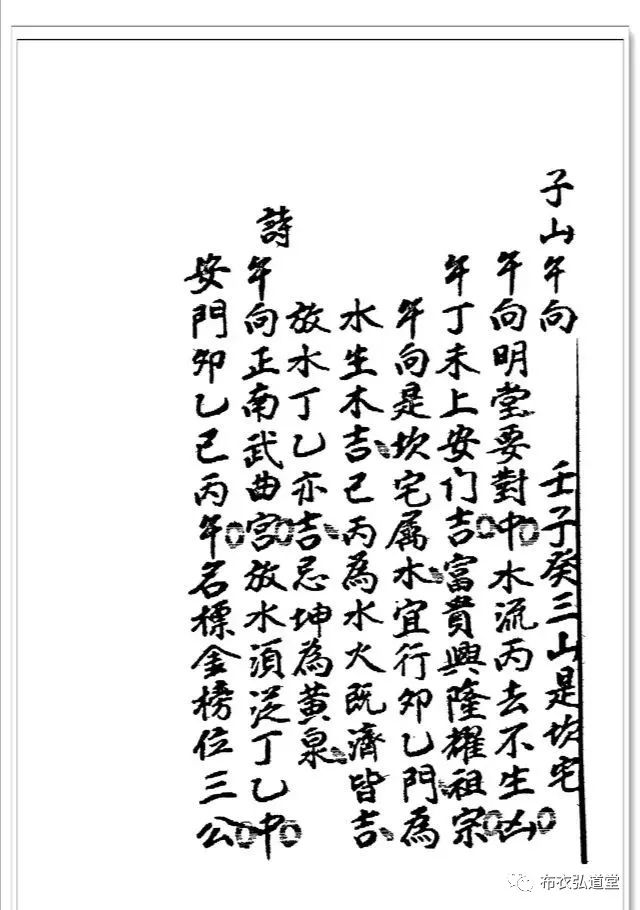 子山午向　壬子癸三山是坎宅
午向明堂要對中水流丙去不生凶
午丁未上安门吉富貴興隆耀祖宗
午向是坎宅属水宜行卯乙門為
水生木吉巳丙為水火既濟皆吉
放水丁乙亦吉忌坤為黃泉
詩
午向正南武曲宮放水須从丁乙中
安門卯乙巳丙午名標金榜位三公
布衣弘道堂